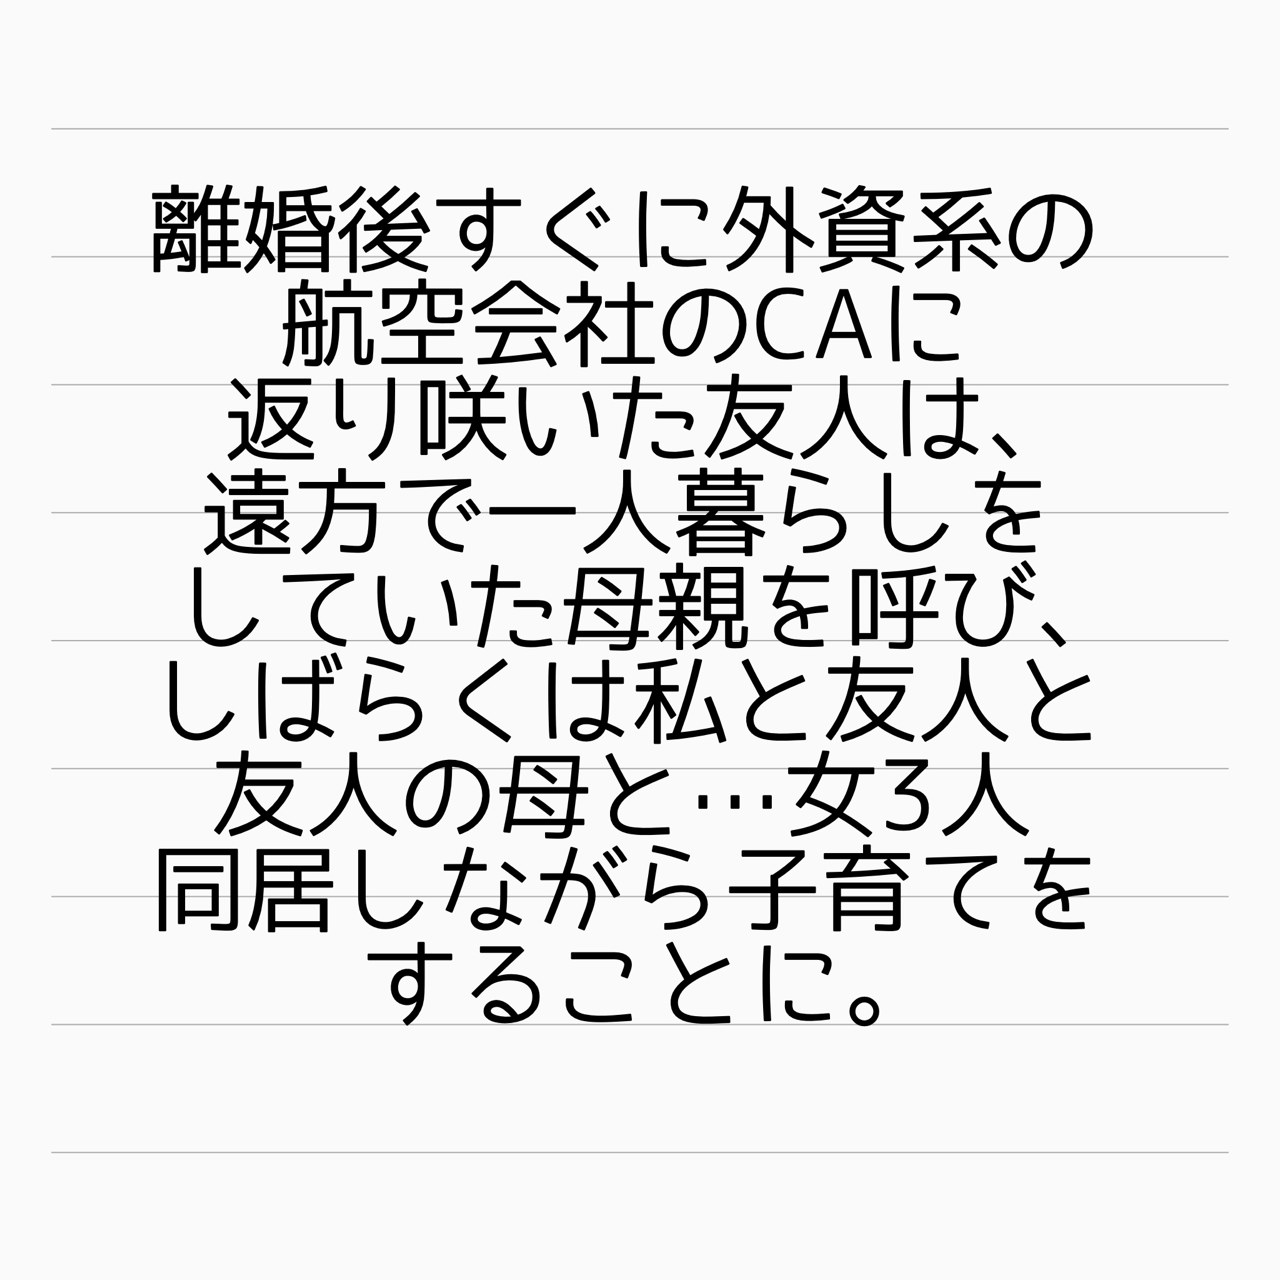 離婚後すぐに外資系の
航空会社のCAに
返り咲いた友人は、
遠方で一人暮らしを
していた母親を呼び、
しばらくは私と友人と
友人の母と…女3人
同居しながら子育てを
することに。